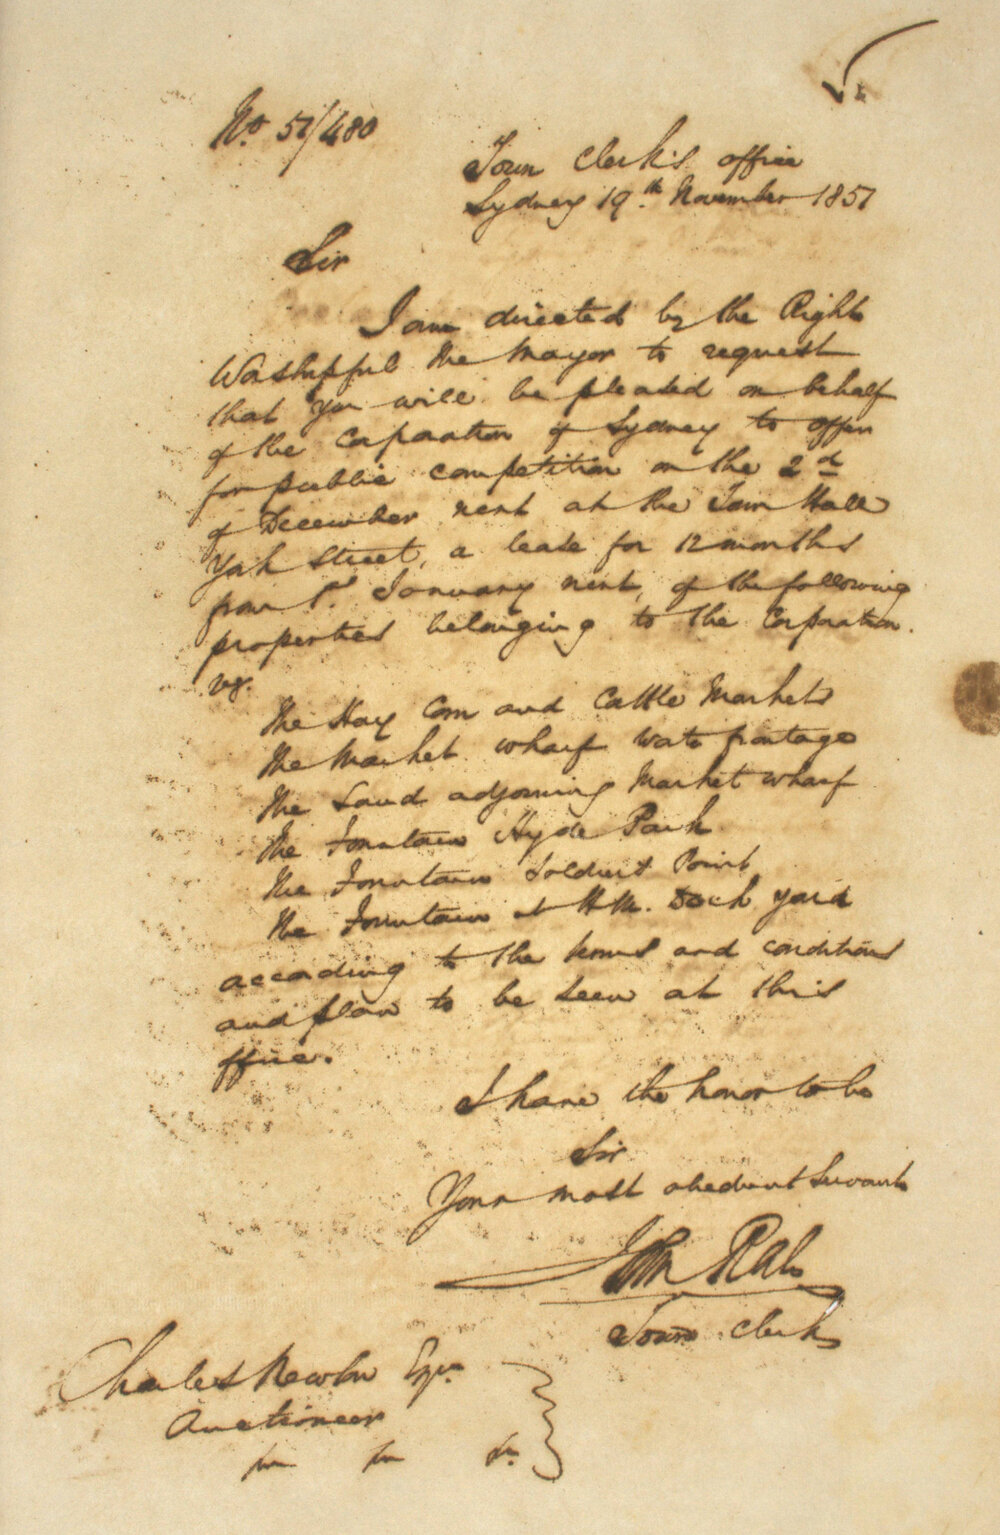 No. 51/480
Town Clerk's office
Sydney 19th November 1851
Sir
I am directed by the Right
Worshipful the Mayor to request
that you will be pleased on behalf
of the Corporation of Sydney to offer
for public competition on the 2d
of December next at the Town Hall
York Street, a lease for 12 months
from 1st January next, of the following
properties belonging to the Corporation.
viz.
The Hay Corn and Cattle Markets
The Market wharf Water frontage
The Land adjoining Market wharf
The Fountain Hyde Park
The Fountain Soldiers Point
The Fountain at H.M. Dock yard
according to the terms and conditions
and plan to be seen at this
office.
I have the honor to be
Sir
Your most obedient Servant
John Rae
Town Clerk
Charles Newton Esqr.
Auctioneer